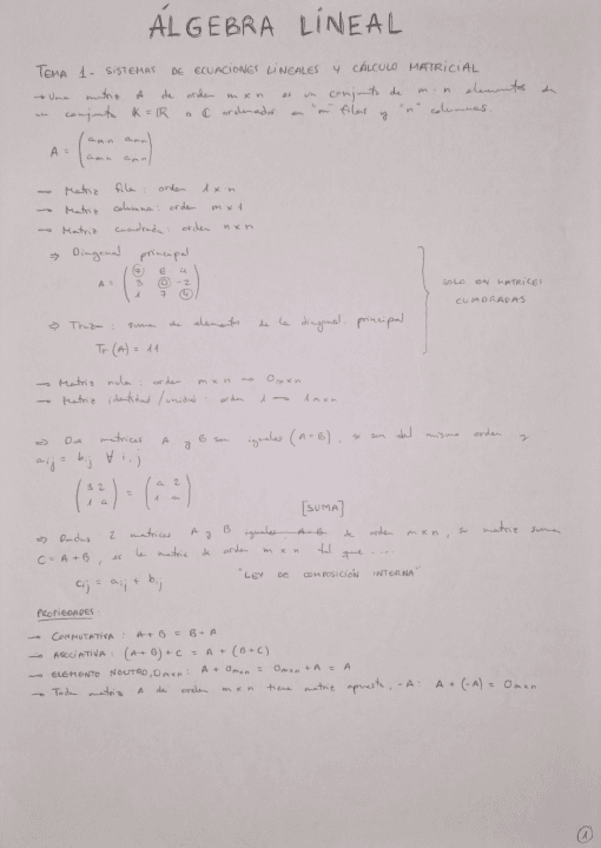 ÁLGEBRA LINEAL
TEMA 1- SISTEMAS DE ECUACIONES LINEALES Y CÁLCULO MATRICIAL
→ Una matriz A de orden m x n es un conjunto de m·n elementos de
un conjunto K = ℝ o ℂ ordenados en "m" filas y "n" columnas.
A =
→ Matriz fila: orden 1 x n
→ Matriz columna: orden m x 1
→ Matriz cuadrada: orden n x n
⇒ Diagonal principal
A = ( 7 6 4
3 0 -2
1 7 4 )
SOLO EN MATRICES
CUADRADAS
⇒ Traza: suma de elementos de la diagonal principal
Tr (A) = 11
→ Matriz nula: orden m x n → 0mxn
→ Matriz identidad/unidad: orden
⇒ Dos matrices A y B son iguales (A=B), si son del mismo orden y
aij = bij ∀ i,j
( 3 2
1 a ) = ( a 2
1 a )
[SUMA]
⇒ Dadas 2 matrices A y B iguales A=B de orden m x n, su matriz suma
C = A + B, es la matriz de orden m x n tal que ....
cij = aij + bij "LEY DE COMPOSICIÓN INTERNA"
PROPIEDADES:
→ CONMUTATIVA: A + B = B + A
→ ASOCIATIVA: (A+B)+C = A + (B+C)
→ ELEMENTO NEUTRO, 0mxn: A + 0mxn = 0mxn + A = A
→ Toda matriz A de orden m x n tiene matriz opuesta, -A: A + (-A) = 0mxn
1